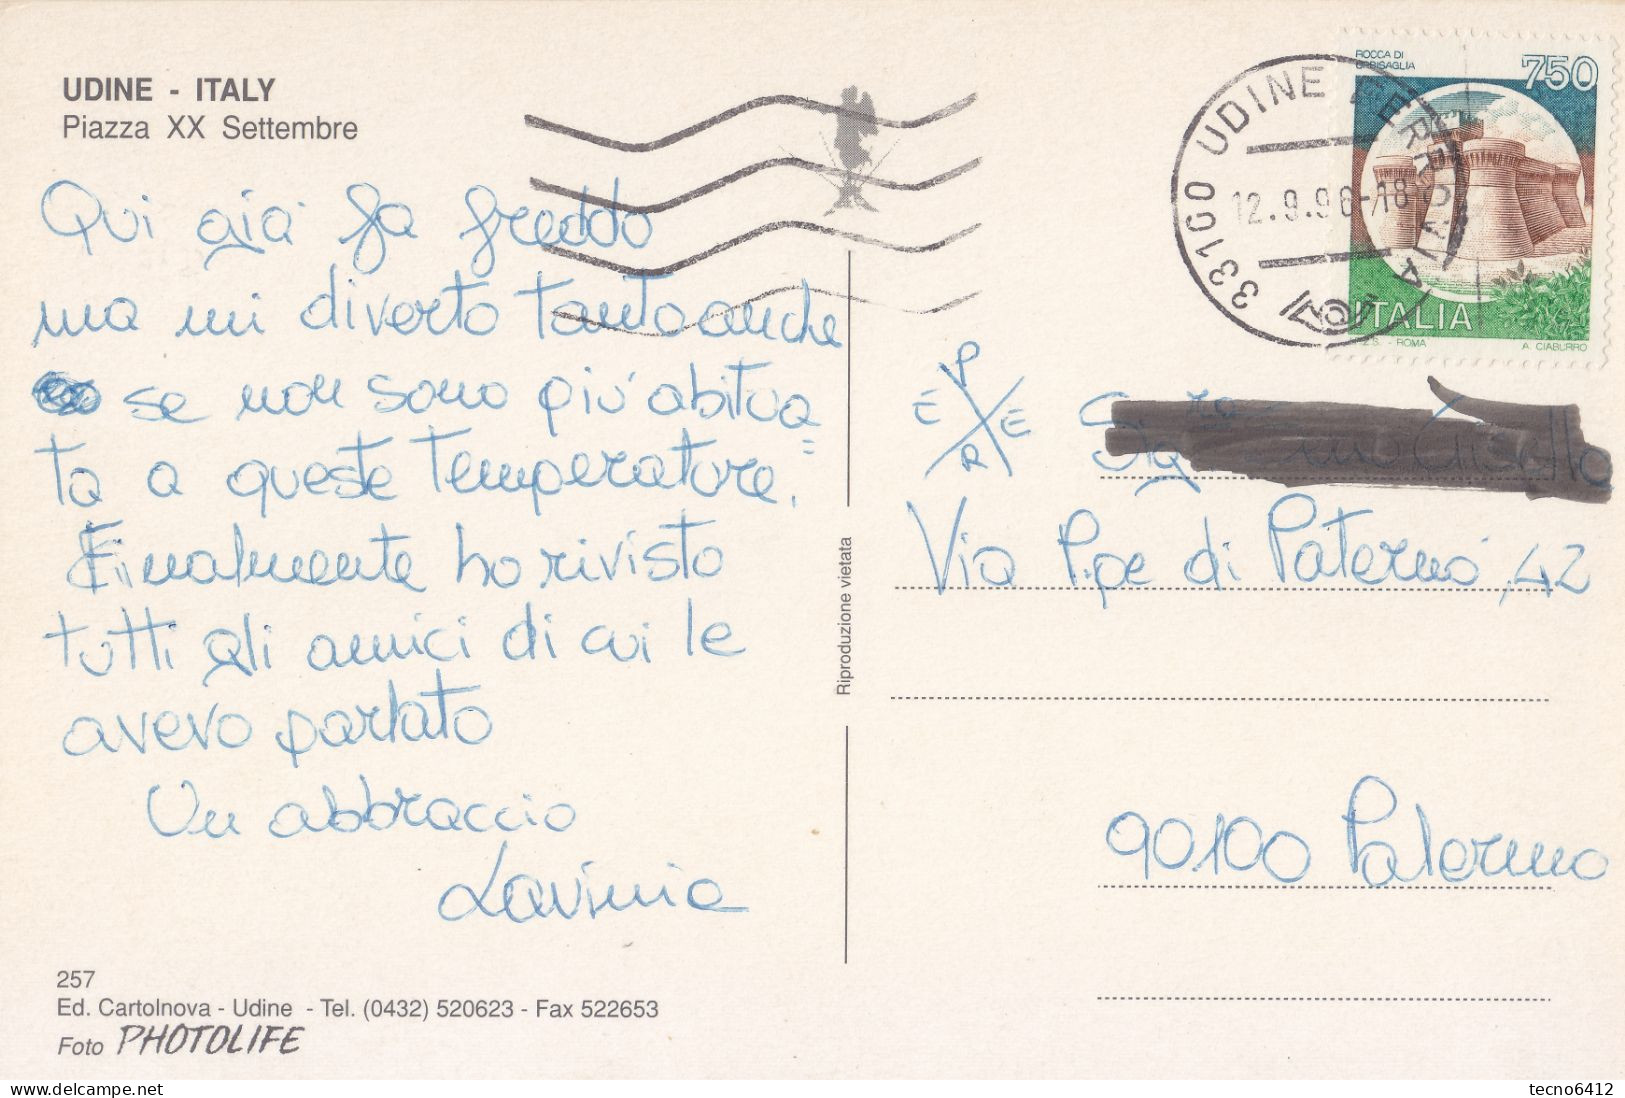 UDINE - ITALY
Piazza XX Settembre
Qui già fa freddo
ma mi diverto tanto anche
se non sono più abitua=
ta a queste temperature.
Finalmente ho rivisto
tutti gli amici di cui le
avevo parlato
Un abbraccio
Lavinia
257
Ed. Cartolnova - Udine - Tel. (0432) 520623 - Fax 522653
Foto PHOTOLIFE
Riproduzione vietata
33100 UDINE FERROVIA
12.9.96-18
ROCCA DI
URBISAGLIA
750
ITALIA
I.P.Z.S. - ROMA A. CIABURRO
P
E E
R
Via P.pe di Paternò, 42
90100 Palermo
delcampe.net
tecno6412